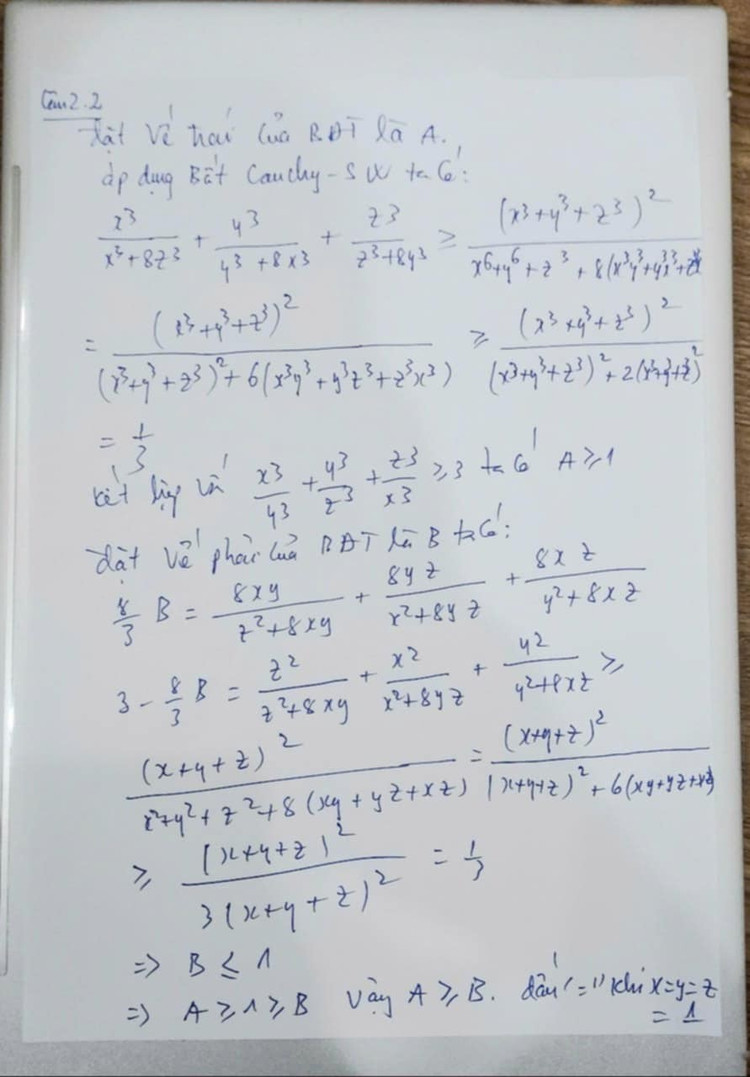 Câu 2.2
Đặt Vế trái của BĐT là A.
áp dụng Bất Cauchy-SW ta có:
x³/(x³+8z³) + y³/(y³+8x³) + z³/(z³+8y³) ≥ (x³+y³+z³)²/(x⁶+y⁶+z³+8(x³y³+y³z³+z³x³))
= (x³+y³+z³)²/((x³+y³+z³)²+6(x³y³+y³z³+z³x³)) ≥ (x³+y³+z³)²/((x³+y³+z³)²+2(x³+y³+z³)²)
= 1/3
kết hợp với x³/y³ + y³/z³ + z³/x³ ≥ 3 ta có A ≥ 1
đặt Vế phải của BĐT là B ta có:
8/3 B = 8xy/(z²+8xy) + 8yz/(x²+8yz) + 8xz/(y²+8xz)
3 - 8/3 B = z²/(z²+8xy) + x²/(x²+8yz) + y²/(y²+8xz) ≥
(x+y+z)²/(x²+y²+z²+8(xy+yz+xz)) = (x+y+z)²/((x+y+z)²+6(xy+yz+xz))
≥ (x+y+z)²/(3(x+y+z)²) = 1/3
=> B ≤ 1
=> A ≥ 1 ≥ B Vậy A ≥ B. dấu "=" khi x=y=z
= 1